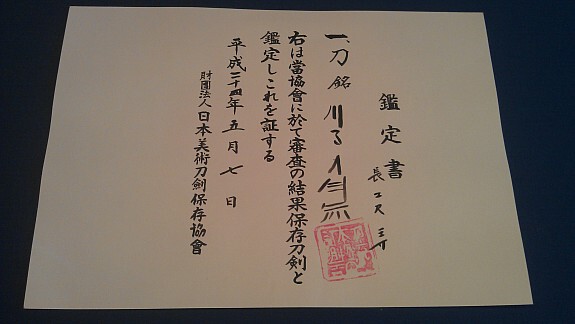 鑑定書
一、刀 銘
長 二尺 三寸
右は當協會に於て審査の結果保存刀剣と
鑑定しこれを証する
平成二十四年五月七日
財團法人 日本美術刀劍保存協會